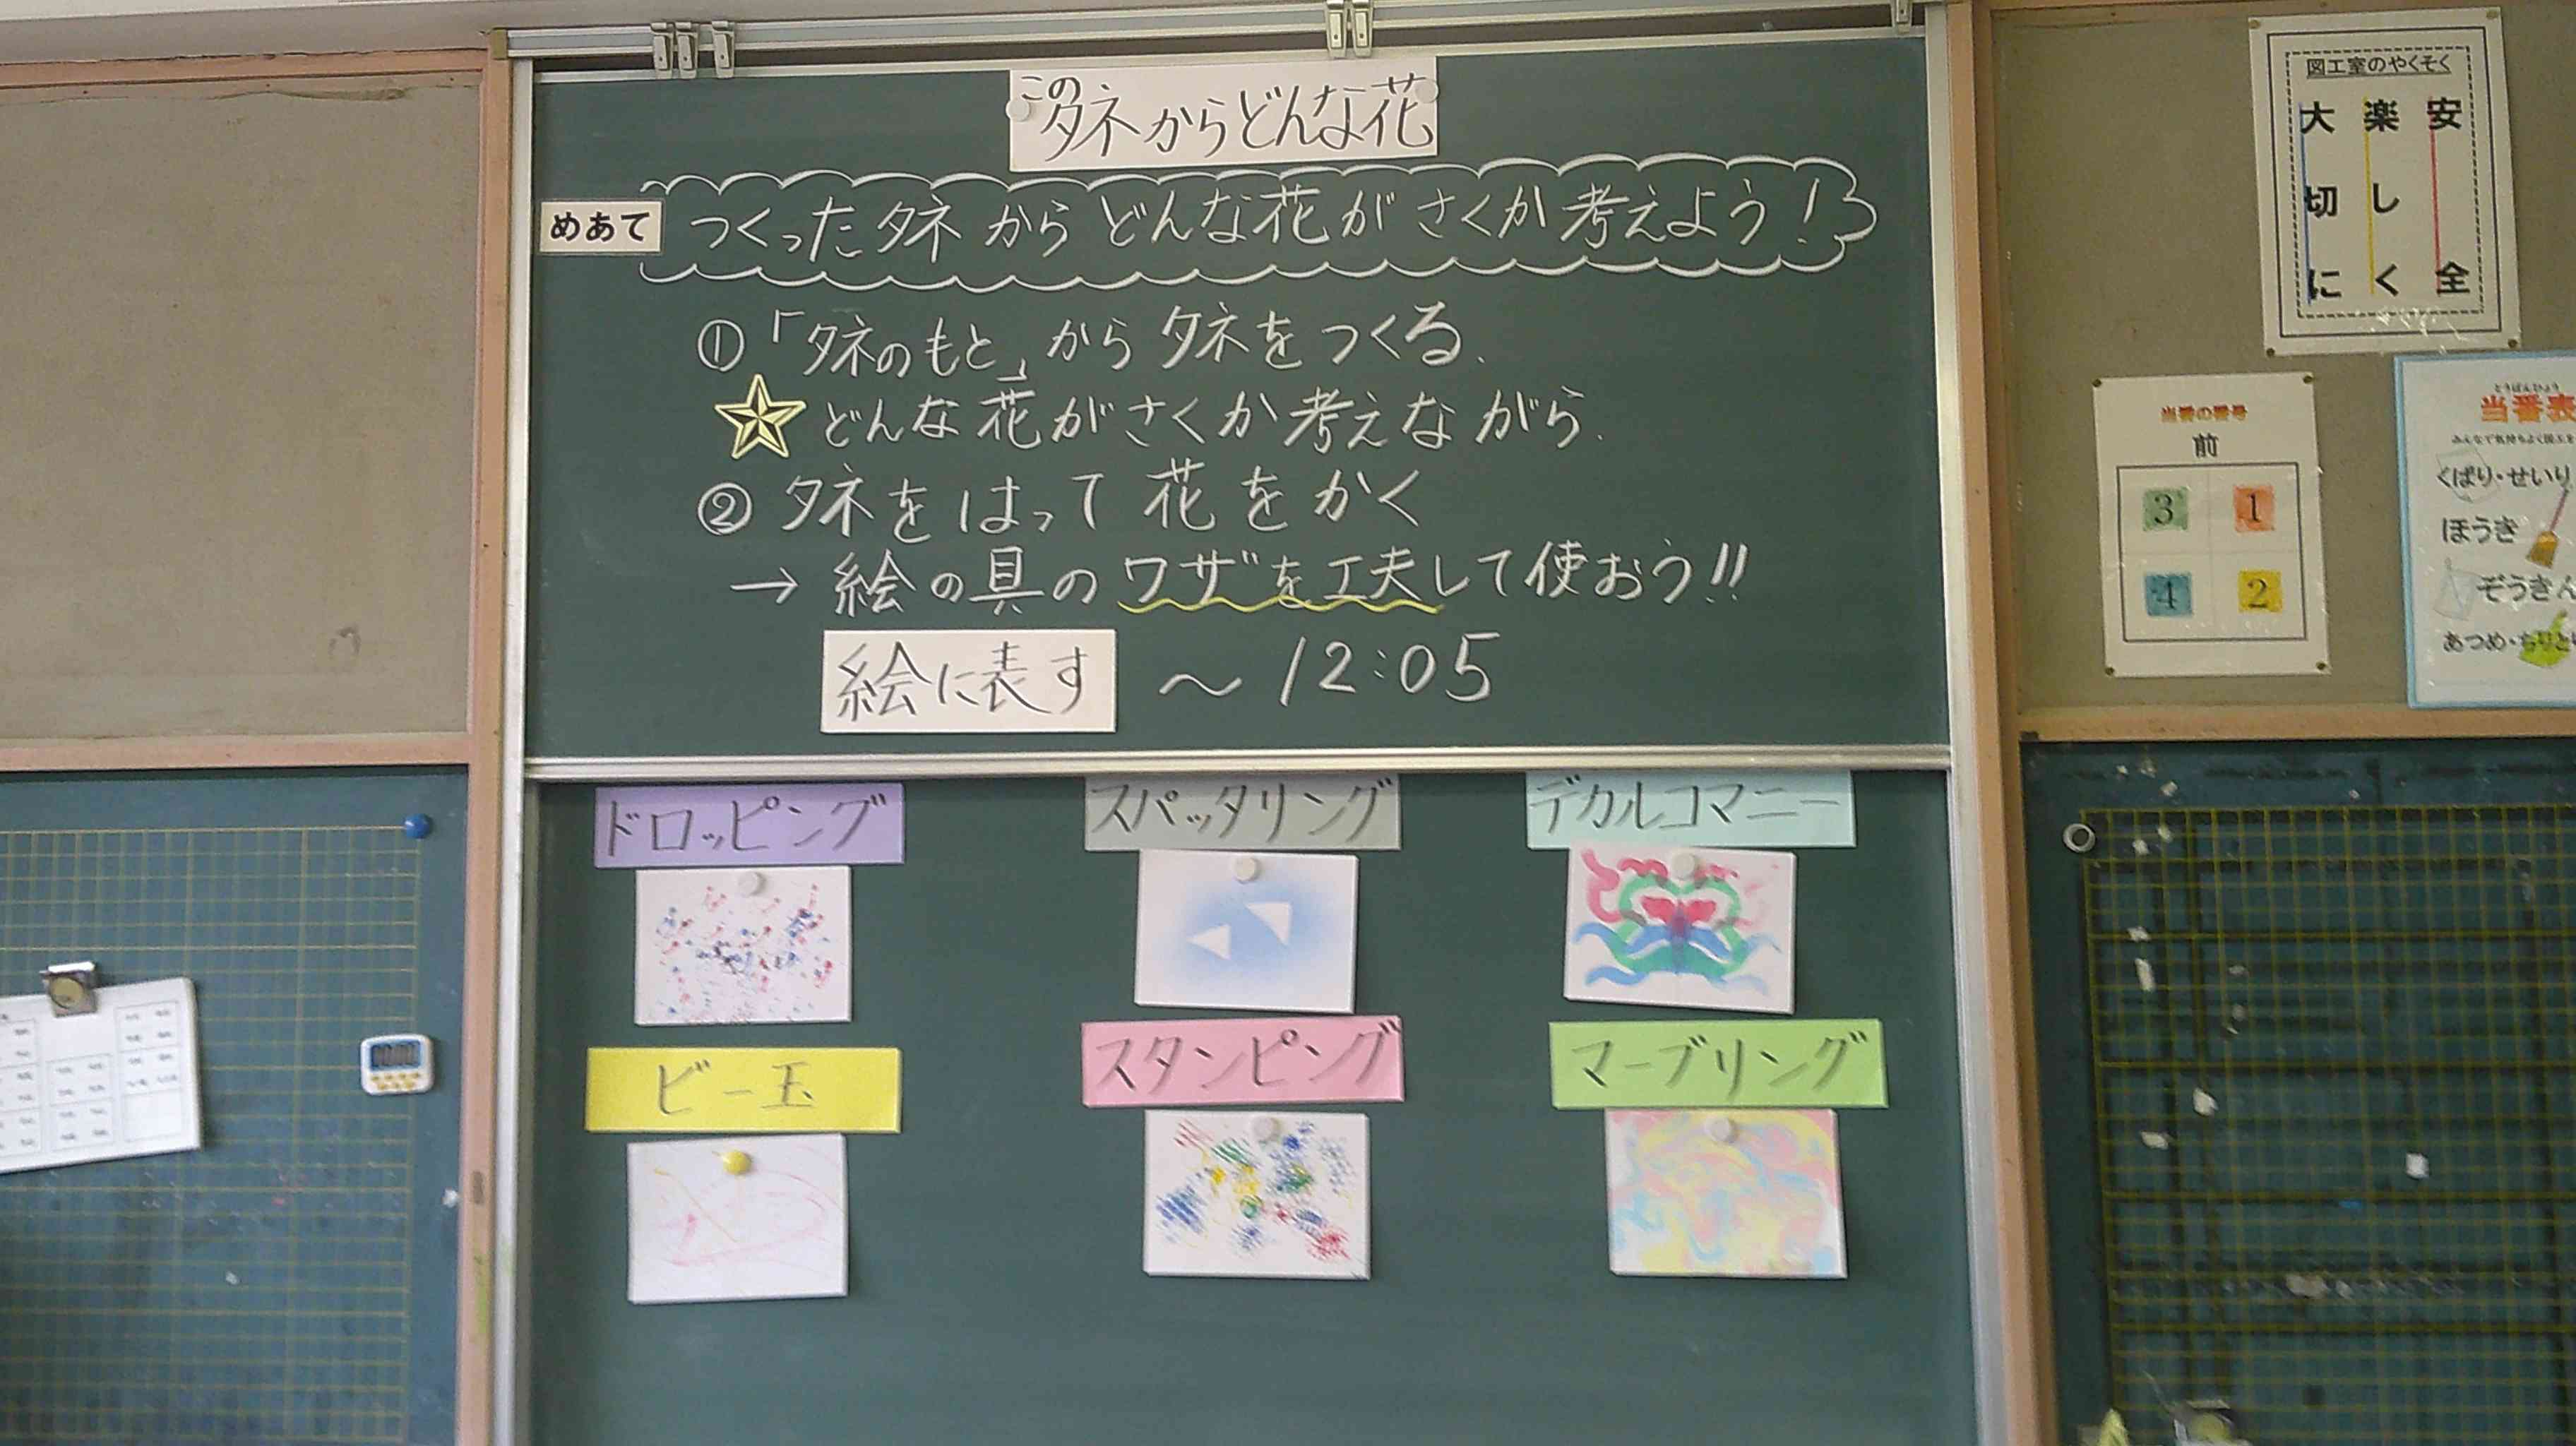 このタネからどんな花
めあて つくったタネからどんな花がさくか考えよう!
①「タネのもと」からタネをつくる.
どんな花がさくか考えながら.
②タネをはって花をかく
→絵の具のワザを工夫して使おう!!
絵に表す ～12:05
ドロッピング
スパッタリング
デカルコマニー
ビー玉
スタンピング
マーブリング
図工室のやくそく
安全
楽しく
大切に
当番の番号
前
3 1
4 2
とうばんひょう
当番表
みんなで気持ちよく図工を
くばり・せいり
ほうき
ぞうきん
あつめ・ちりと